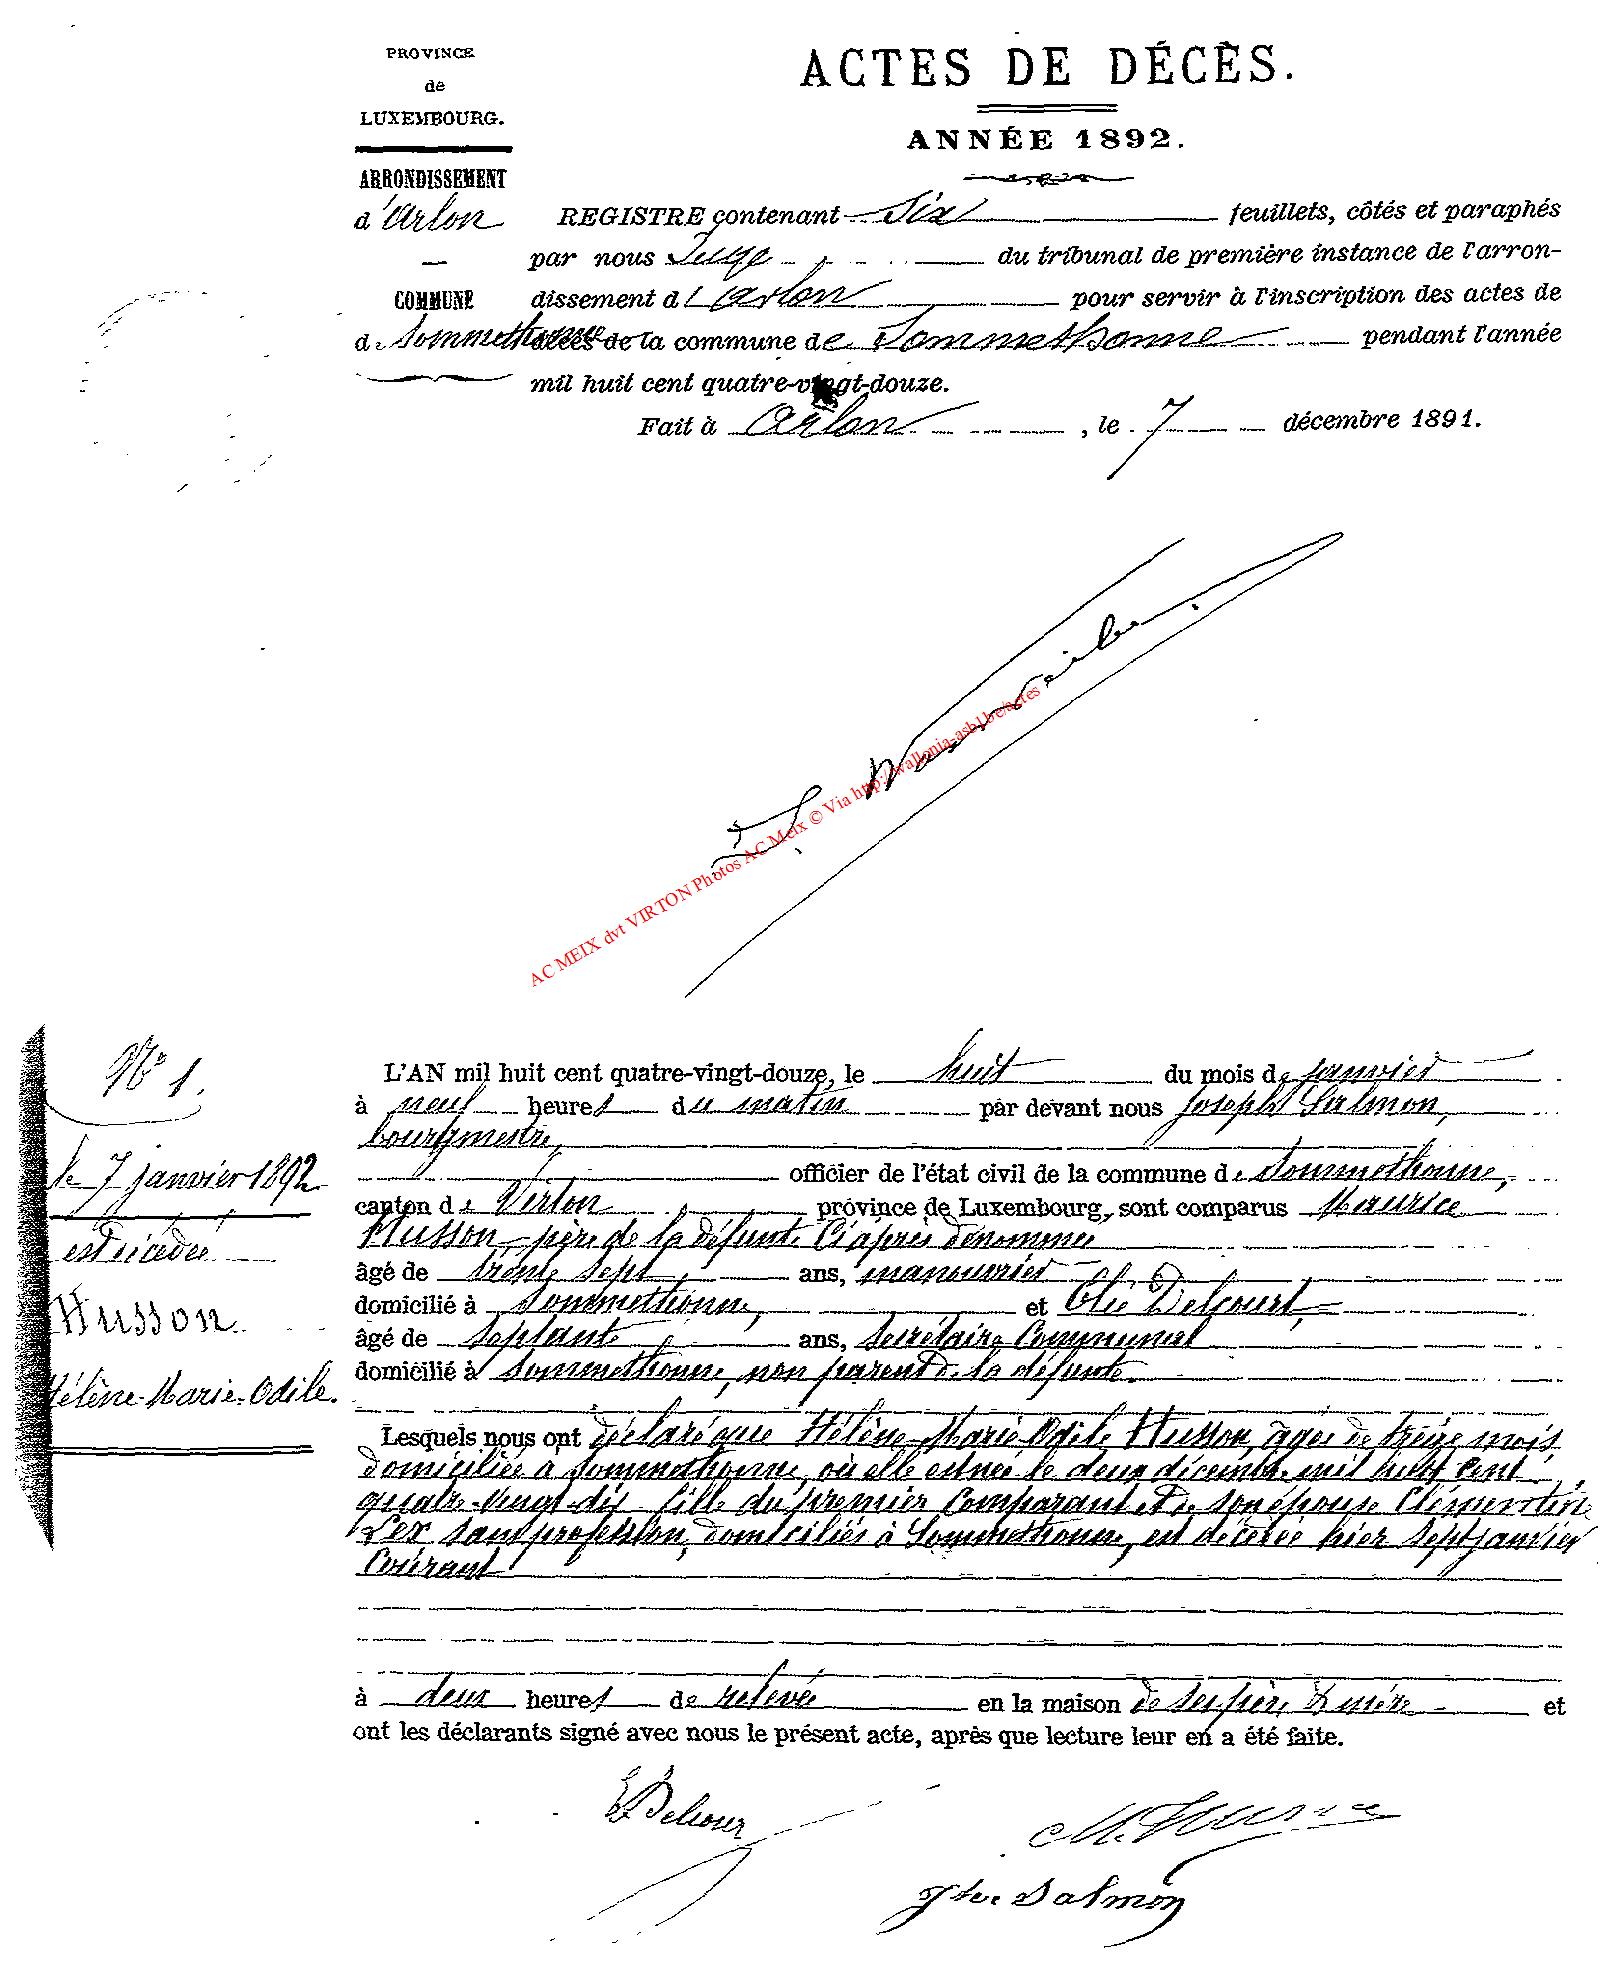 PROVINCE
de
LUXEMBOURG.
ARRONDISSEMENT
d'Arlon
COMMUNE
de Sommethonne
ACTES DE DÉCÈS.
ANNÉE 1892.
REGISTRE contenant Six feuillets, côtés et paraphés
par nous Juge du tribunal de première instance de l'arron-
dissement d'Arlon pour servir à l'inscription des actes de
décès de la commune de Sommethonne pendant l'année
mil huit cent quatre-vingt-douze.
Fait à Arlon, le 7 décembre 1891.
AC MEIX dvt VIRTON Photos AC Meix © Via http://wallonia-asbl.be/actes
N° 1.
le 7 janvier 1892
est décédée
Husson
Hélène-Marie-Odile.
L'AN mil huit cent quatre-vingt-douze, le huit du mois de janvier
à neuf heures du matin par devant nous Joseph Salmon,
bourgmestre,
officier de l'état civil de la commune de Sommethonne,
canton de Virton province de Luxembourg, sont comparus Maurice
Husson, père de la défunte ci après dénommée
âgé de trente sept ans, manouvrier
domicilié à Sommethonne, et Elie Delcourt,
âgé de septante ans, secrétaire communal
domicilié à Sommethonne, non parent de la défunte.
Lesquels nous ont déclaré que Hélène-Marie-Odile Husson, âgée de treize mois
domiciliée à Sommethonne, où elle est née le deux décembre mil huit cent
quatre-vingt-dix fille du premier comparant et de son épouse Clémentine
Lex sans profession, domiciliés à Sommethonne, est décédée hier sept janvier
courant
à deux heures de relevée en la maison de ses père & mère et
ont les déclarants signé avec nous le présent acte, après que lecture leur en a été faite.
E Delcour
M. Husson
Jh Salmon